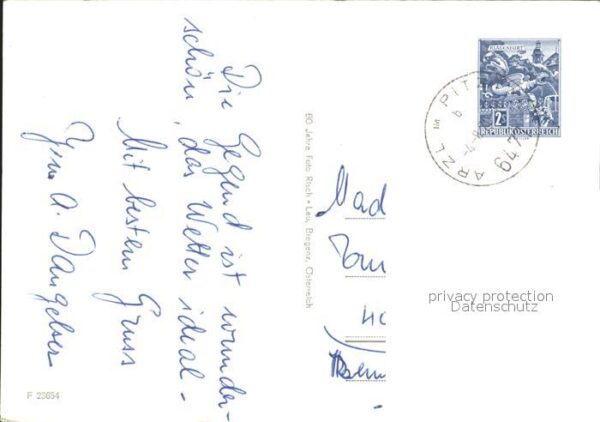 Die Gegend ist wunder-
schön, das Wetter ideal -
Mit bestem Gruss
A. Dangelser
60 Jahre Foto Risch-Lau, Bregenz, Österreich
F 23654
Mad
KLAGENFURT
2S
REPUBLIK ÖSTERREICH
ARZL
PIT
b
647
privacy protection
Datenschutz